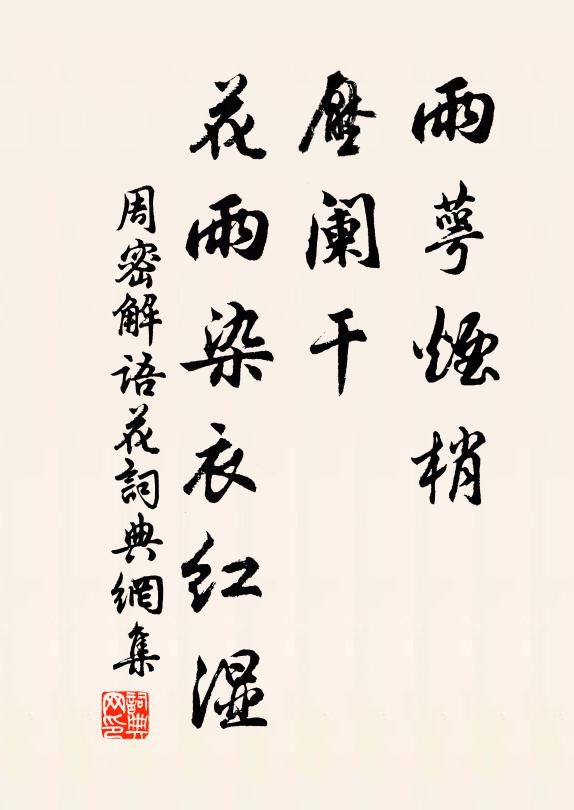 雨萼煙梢
壓阑干
花雨染衣红湿
周密解语花詞典網集
詞典网印